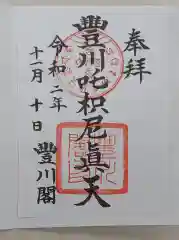 奉拝
豊川吒枳尼眞天
令和二年
十一月十日
豊川閣